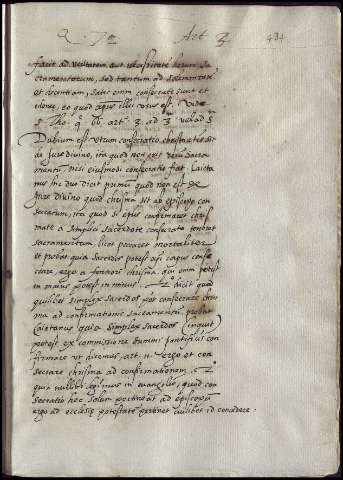 Q. 72 Art 3 434
facit ad veritatem aut necessitatem horum sa
cramentorum, sed tantum ad
et decentiam, satis enim consecrata sunt et
idonea, eo quod Christi illis usus est. Vide
S. Tho. q. art. 3. ad 3 vel ad 5
Dubium est utrum consecratio chrismatis sit
de jure divino, ita quod non erit verum Sacra
mentum nisi ejusmodi consecratio fiat. Caieta
nus hic duo dicit primum quod non est de
jure divino quod chrisma sit ab episcopo con
secratum, ita quod si episcopus confirmaret chris
mate a simplici sacerdote consecrato teneret
sacramentum, licet peccaret mortaliter
et probat quia sacerdos potest corpus conse
crare, ergo a fortiori chrisma, qui enim potest
in maius potest in minus. 2o dicit quod
quilibet simplex sacerdos potest consecrare chris
ma ad confirmationis sacramentum. probat
Caietanus quia simplex sacerdos (inquit)
potest ex commissione summi pontificis con
firmare ut dicemus art. 11 ergo et con
secrare chrisma ad confirmationem. 2o
quia nullibi legimus in evangeliis, quod con
secratio haec solum pertineat ad episcopum
ergo ad ecclesiae potestatem pertinet cuilibet id concedere.